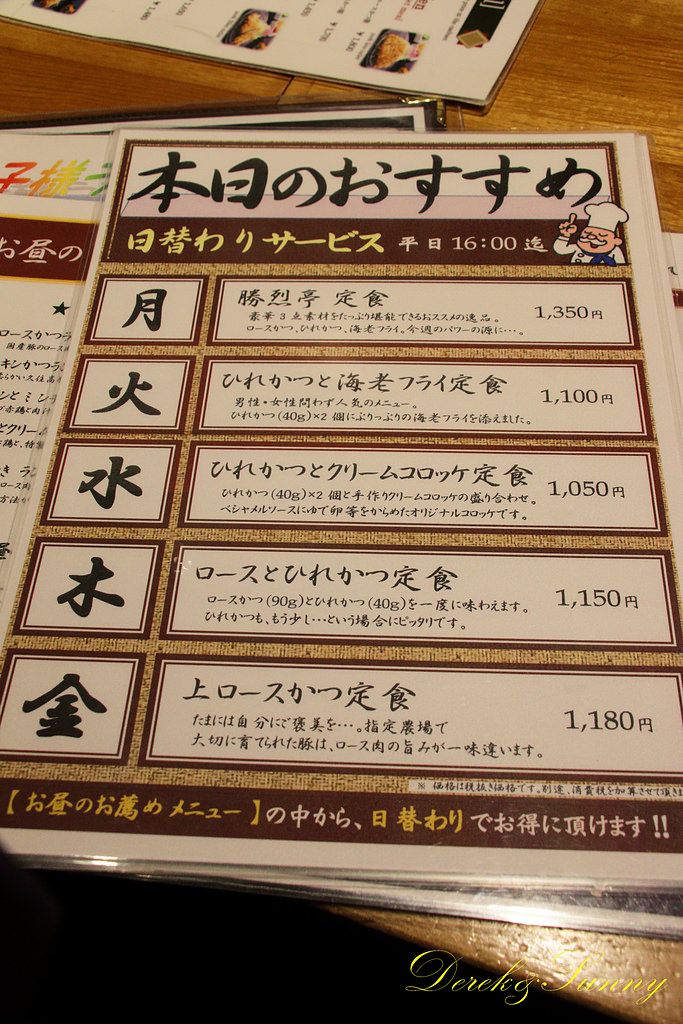 ￥1,400
￥1,700
￥1,800
子様
お昼の
★
ロースかつ
国産豚のロース
本日のおすすめ
日替わりサービス 平日16:00迄
月
勝烈亭 定食
豪華3点素材をたっぷり堪能できるおススメの逸品。
ロースかつ、ひれかつ、海老フライ。今週のパワーの源に…。
1,350円
火
ひれかつと海老フライ定食
男性・女性問わず人気のメニュー。
ひれかつ(40g)×2個にぷりっぷりの海老フライを添えました。
1,100円
水
ひれかつとクリームコロッケ定食
ひれかつ(40g)×2個と手作りクリームコロッケの盛り合わせ。
ベシャメルソースにゆで卵等をからめたオリジナルコロッケです。
1,050円
木
ロースとひれかつ定食
ロースかつ(90g)とひれかつ(40g)を一度に味わえます。
ひれかつも、もう少し…という場合にピッタリです。
1,150円
金
上ロースかつ定食
たまには自分にご褒美を…。指定農場で
大切に育てられた豚は、ロース肉の旨みが一味違います。
1,180円
※ 価格は税抜き価格です。別途、消費税を加算させて頂きま
【お昼のお薦めメニュー】の中から、日替わりでお得に頂けます!!
Derek&Sunny